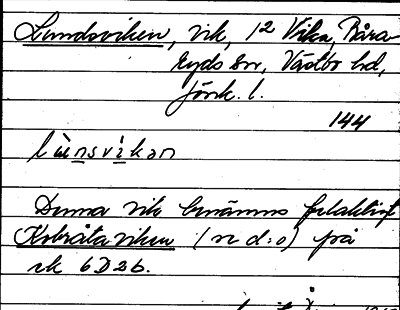 Lundsviken, vik, 12 Vika, Båra-
ryds sn, Västbo hd,
Jönk. l.
144
lùnsvìkan
Denna vik benämns felaktigt
Kobråtaviken (n d:o) på
ek 6D2b.